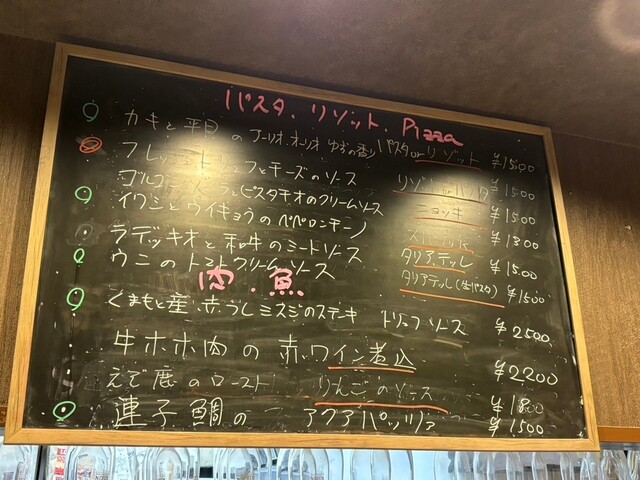 パスタ、リゾット、Pizza
カキと平目のアーリオ、オーリオ ゆずの香り パスタor リゾット ¥1500
フレッシュトリュフとチーズのソース リゾットorパスタ ¥1500
ゴルゴンゾーラとピスタチオのクリームソース ニョッキ ¥1500
イワシとウイキョウのペペロンチーノ ¥1300
ラデッキオと和牛のミートソース タリアテッレ ¥1500
ウニのトマトクリームソース タリアテッレ(生パスタ) ¥1500
肉、魚
くまもと産、赤うしミスジのステーキ トリュフソース ¥2500
牛ホホ肉の赤ワイン煮込 ¥2200
えぞ鹿のロースト りんごのソース ¥1800
連子鯛の アクアパッツァ ¥1500